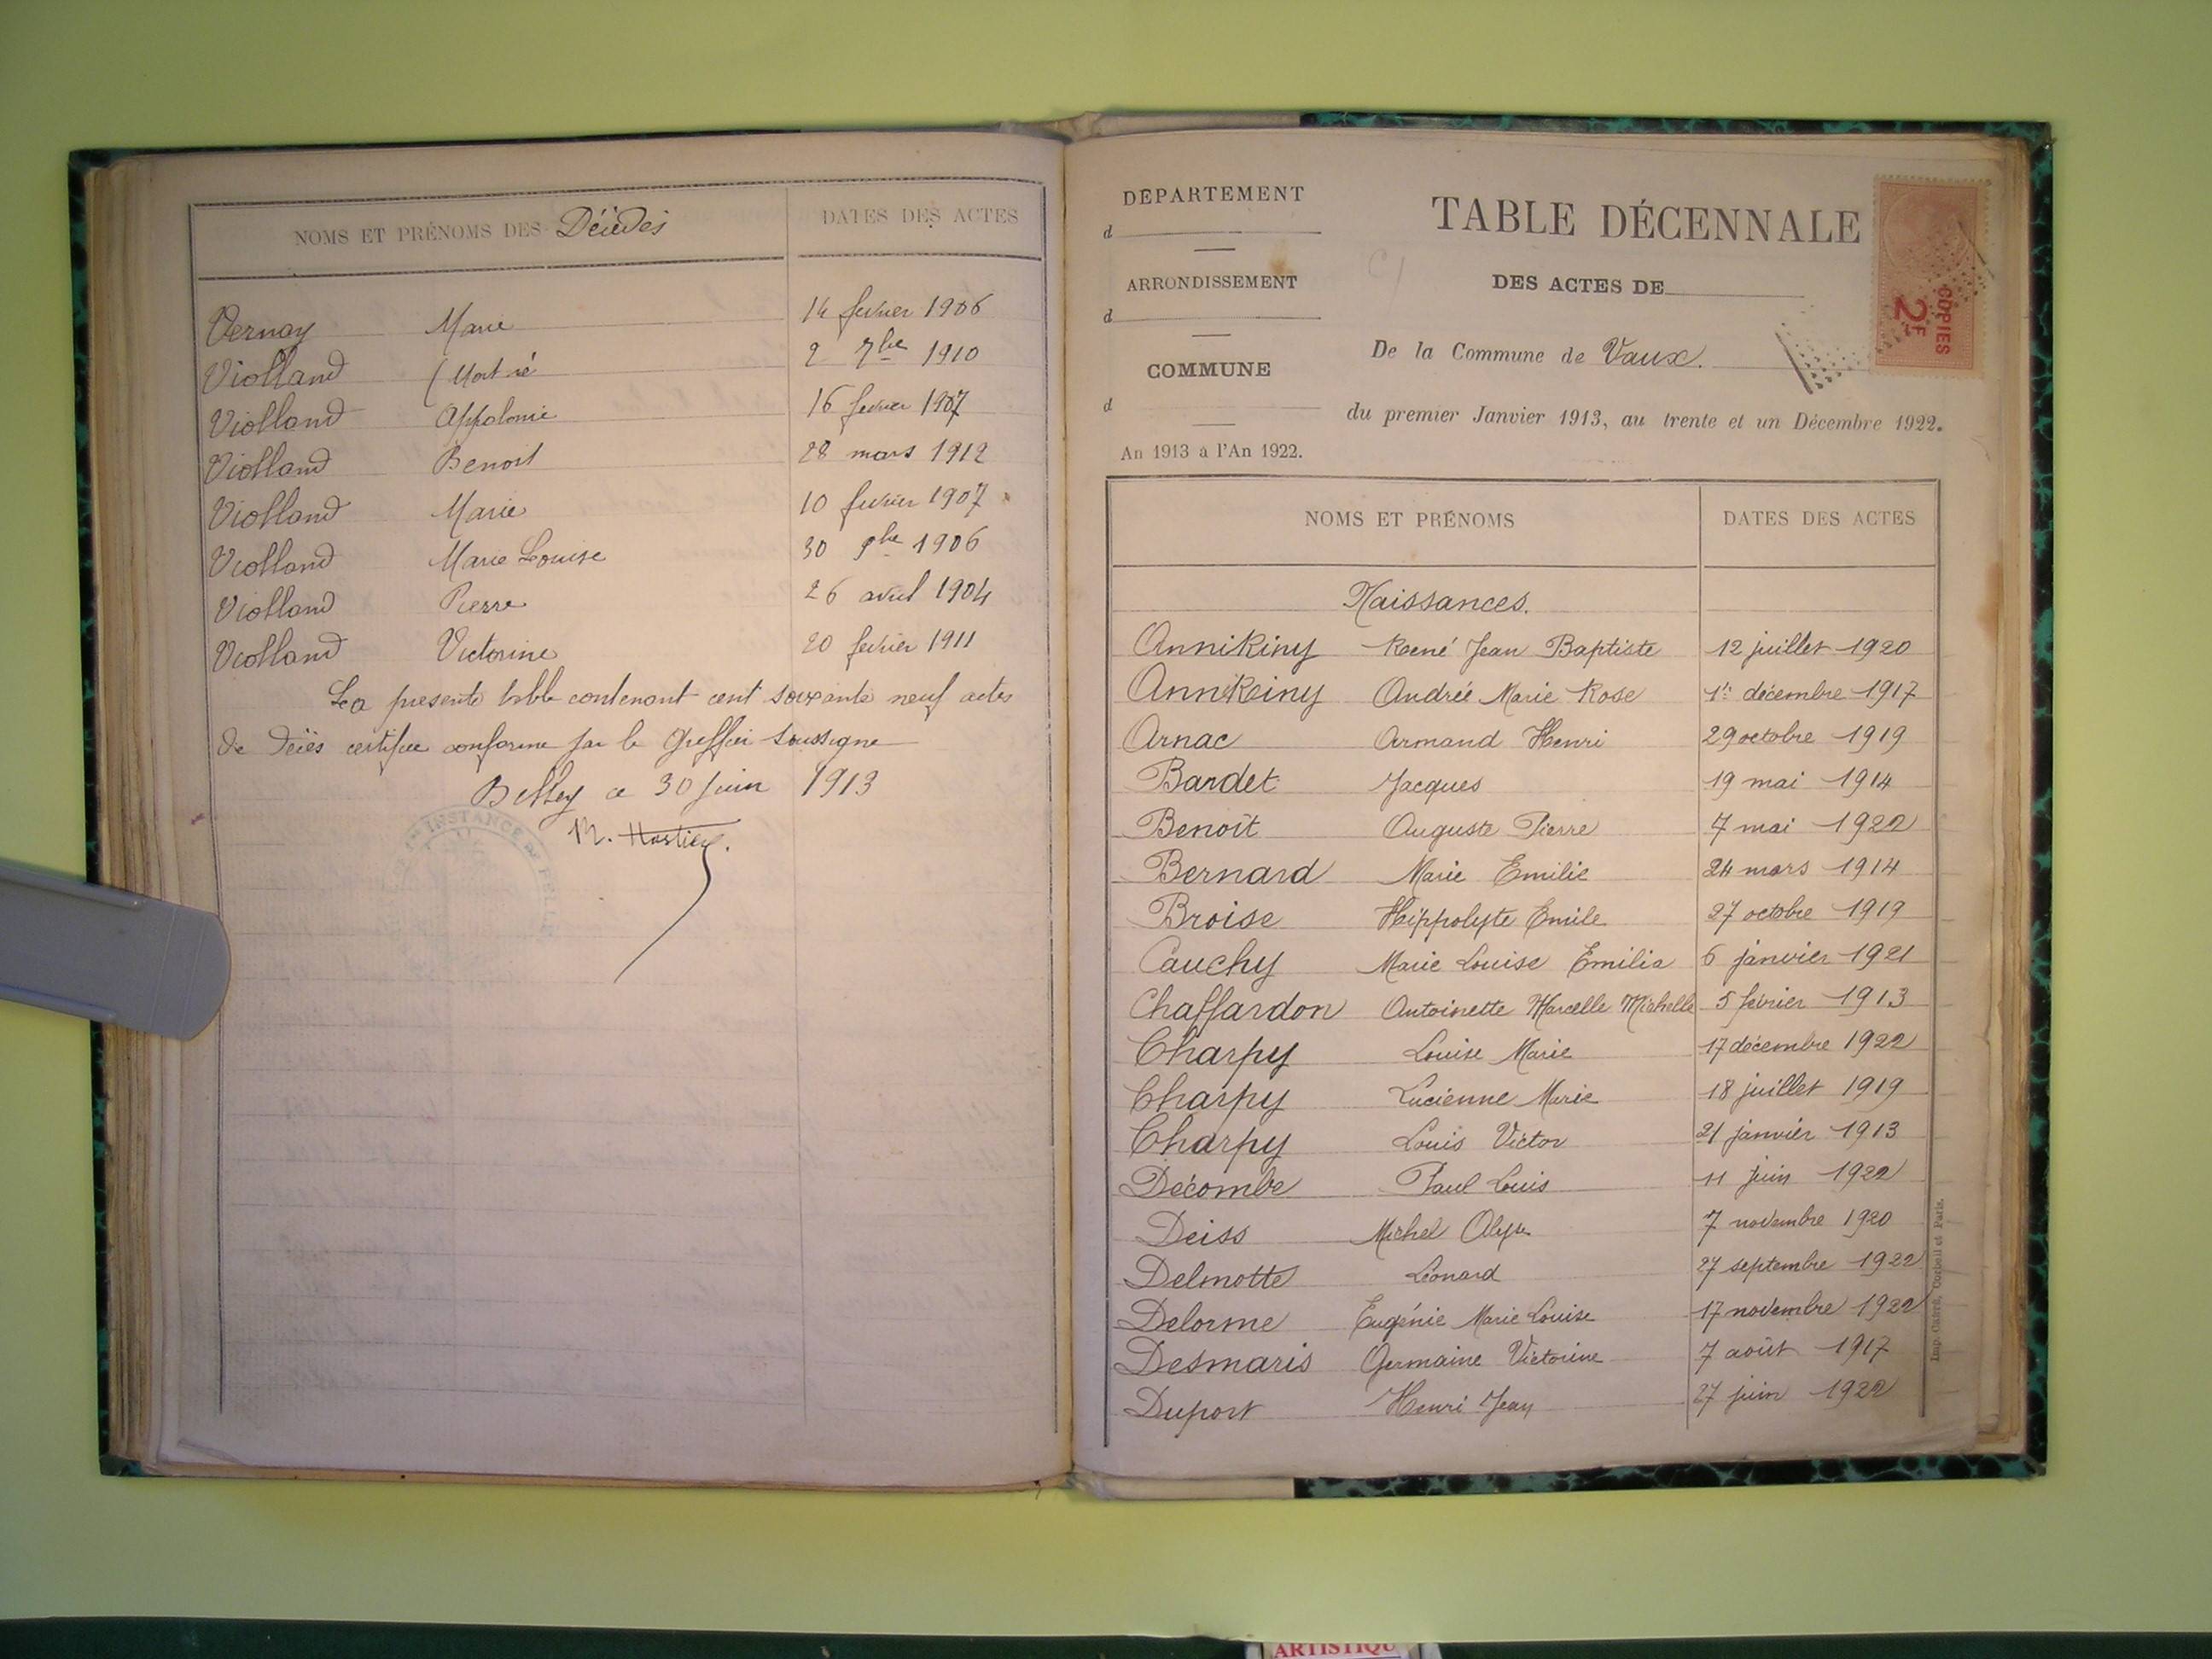 NOMS ET PRÉNOMS DES Décédés DATES DES ACTES
Vernay Marie 14 fevrier 1906
Violland (Mort né 2 7bre 1910
Violland Appolonie 16 fevrier 1907
Violland Benoit 28 mars 1912
Violland Marie 10 fevrier 1907
Violland Marie Louise 30 9bre 1906
Violland Pierre 26 avril 1904
Violland Victorine 20 fevrier 1911
La presente table contenant cent soixante neuf actes
de décès certifiée conforme par le Greffier soussigné
Belley ce 30 Juin 1913
INSTANCE DE BELLEY
DÉPARTEMENT
d
ARRONDISSEMENT
d
COMMUNE
d
An 1913 à l'An 1922.
TABLE DÉCENNALE
DES ACTES DE
De la Commune de Vaux.
du premier Janvier 1913, au trente et un Décembre 1922.
COPIES
2F
NOMS ET PRÉNOMS DATES DES ACTES
Naissances.
Annikiny René Jean Baptiste 12 juillet 1920
Annikeiny Andrée Marie Rose 1er décembre 1917
Arnac Armand Henri 29 octobre 1919
Bardet Jacques 19 mai 1914
Benoit Auguste Pierre 7 mai 1922
Bernard Marie Emilie 24 mars 1914
Broise Hippolyte Emile 27 octobre 1919
Cauchy Marie Louise Emilia 6 janvier 1921
Chaffardon Antoinette Marcelle Michelle 5 février 1913
Charpy Louise Marie 17 décembre 1922
Charpy Lucienne Marie 18 juillet 1919
Charpy Louis Victor 21 janvier 1913
Décombe Paul Louis 11 juin 1922
Deiss Michel 7 novembre 1920
Delmotte Léonard 27 septembre 1922
Delorme Eugénie Marie Louise 17 novembre 1922
Desmaris Germaine Victorine 7 août 1917
Duport Henri Jean 27 juin 1922
Corbeil et Paris.
ARTISTIQU